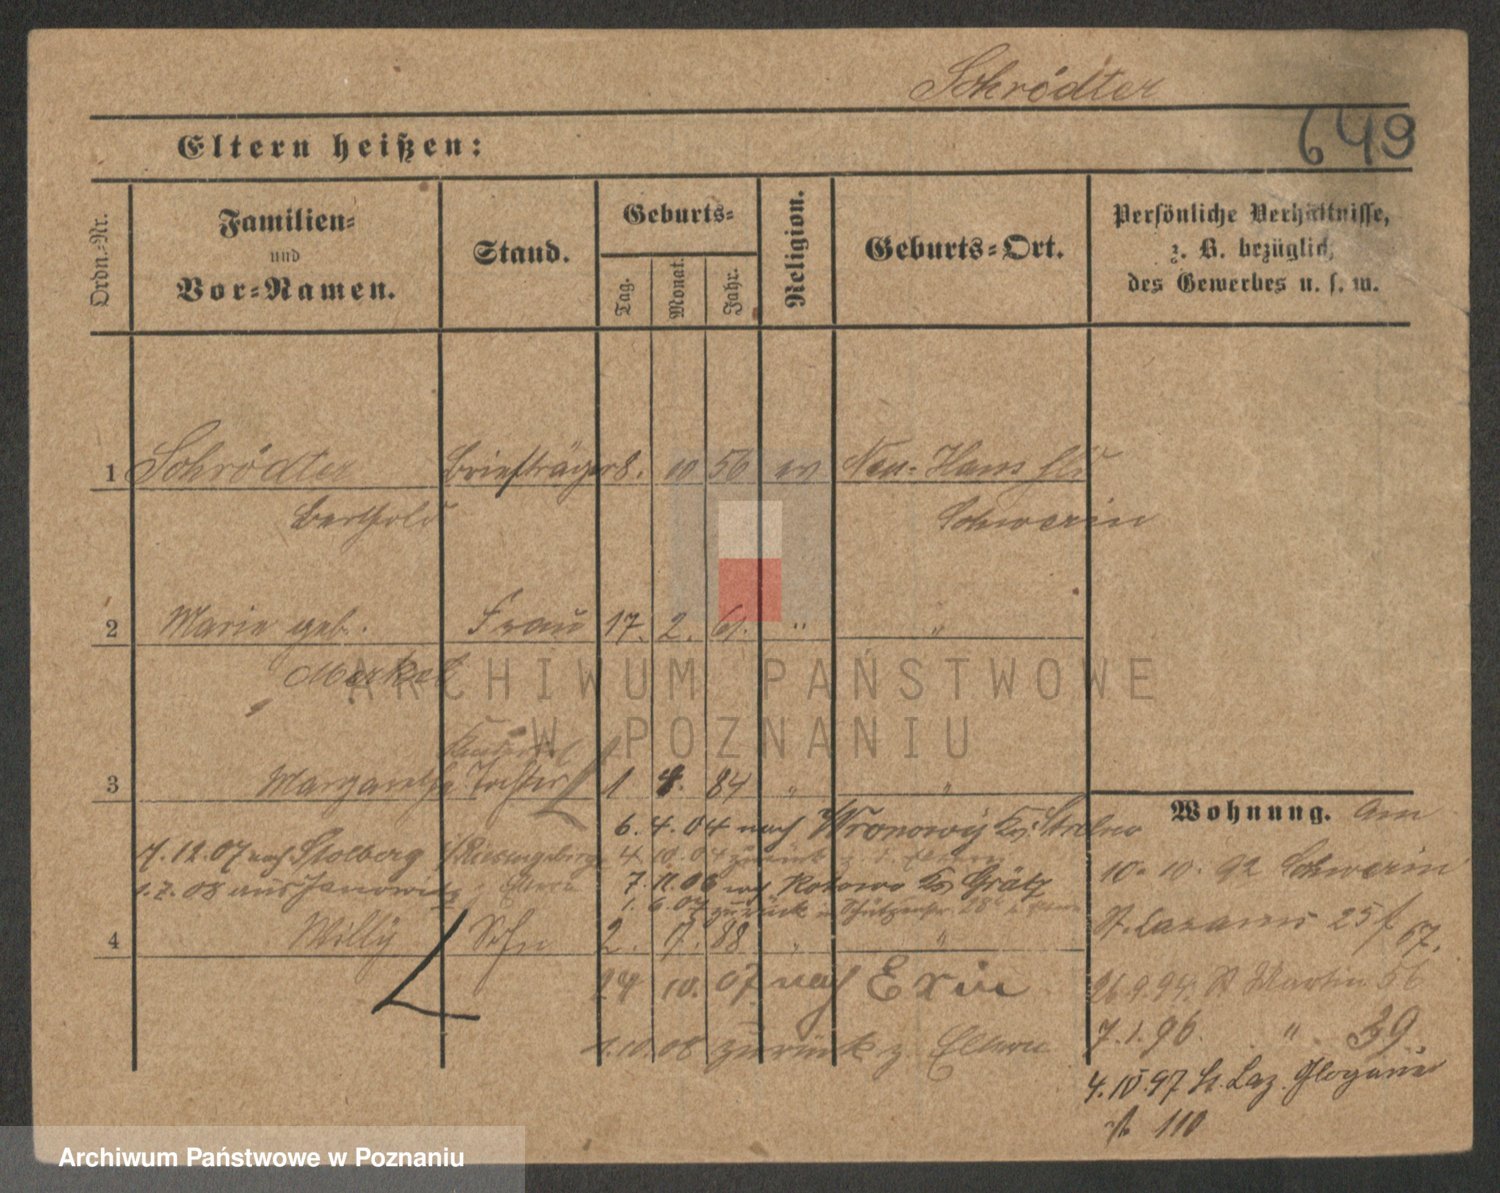 Schrödter
649
Eltern heißen:
Ordn.-Nr.
Familien-
und
Vor-Namen.
Stand.
Geburts-
Tag.
Monat.
Jahr.
Religion.
Geburts-Ort.
Persönliche Verhältnisse,
z. B. bezüglich
des Gewerbes u. s. w.
1 Schrödter Briefträger 8. 10 56 ev Neu-
Berthold Schwerin
2 Marie geb. Frau 17. 2. 61. " "
Merket
3 Margarethe Tochter 1. 4. 84 " "
6.4.04 nach Wronowy Kr. Strelno
7.12.07 nach Stolberg 4.10.04 zurück z. d. Eltern
1.2.08 aus Janowitz z. Eltern 7.11.06 nach Kotowo Kr Grätz
1.6.07 zurück
4 Willy Sohn 2. 7. 88 " "
24 10. 07 nach Exin
1.10.08 zurück z. Eltern
Wohnung. Am
10. 10. 92 Schwerin
St. Lazarus 25 f 67.
26.9.94. St Martin 56
7.1.96. " 39.
4.IV.97 St. Laz. Glogauer
st 110
ARCHIWUM PAŃSTWOWE
W POZNANIU
Archiwum Państwowe w Poznaniu